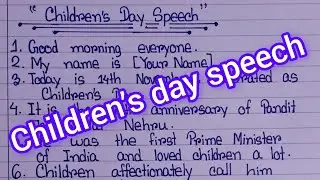 "Children's Day Speech"
1. Good morning everyone.
2. My name is [Your Name]
3. Today is 14th
Children's
4. It is anniversary of Pandit
Nehru.
was the first Prime Minister
of India and loved children a lot.
6. Children affectionately call him
Children's day speech